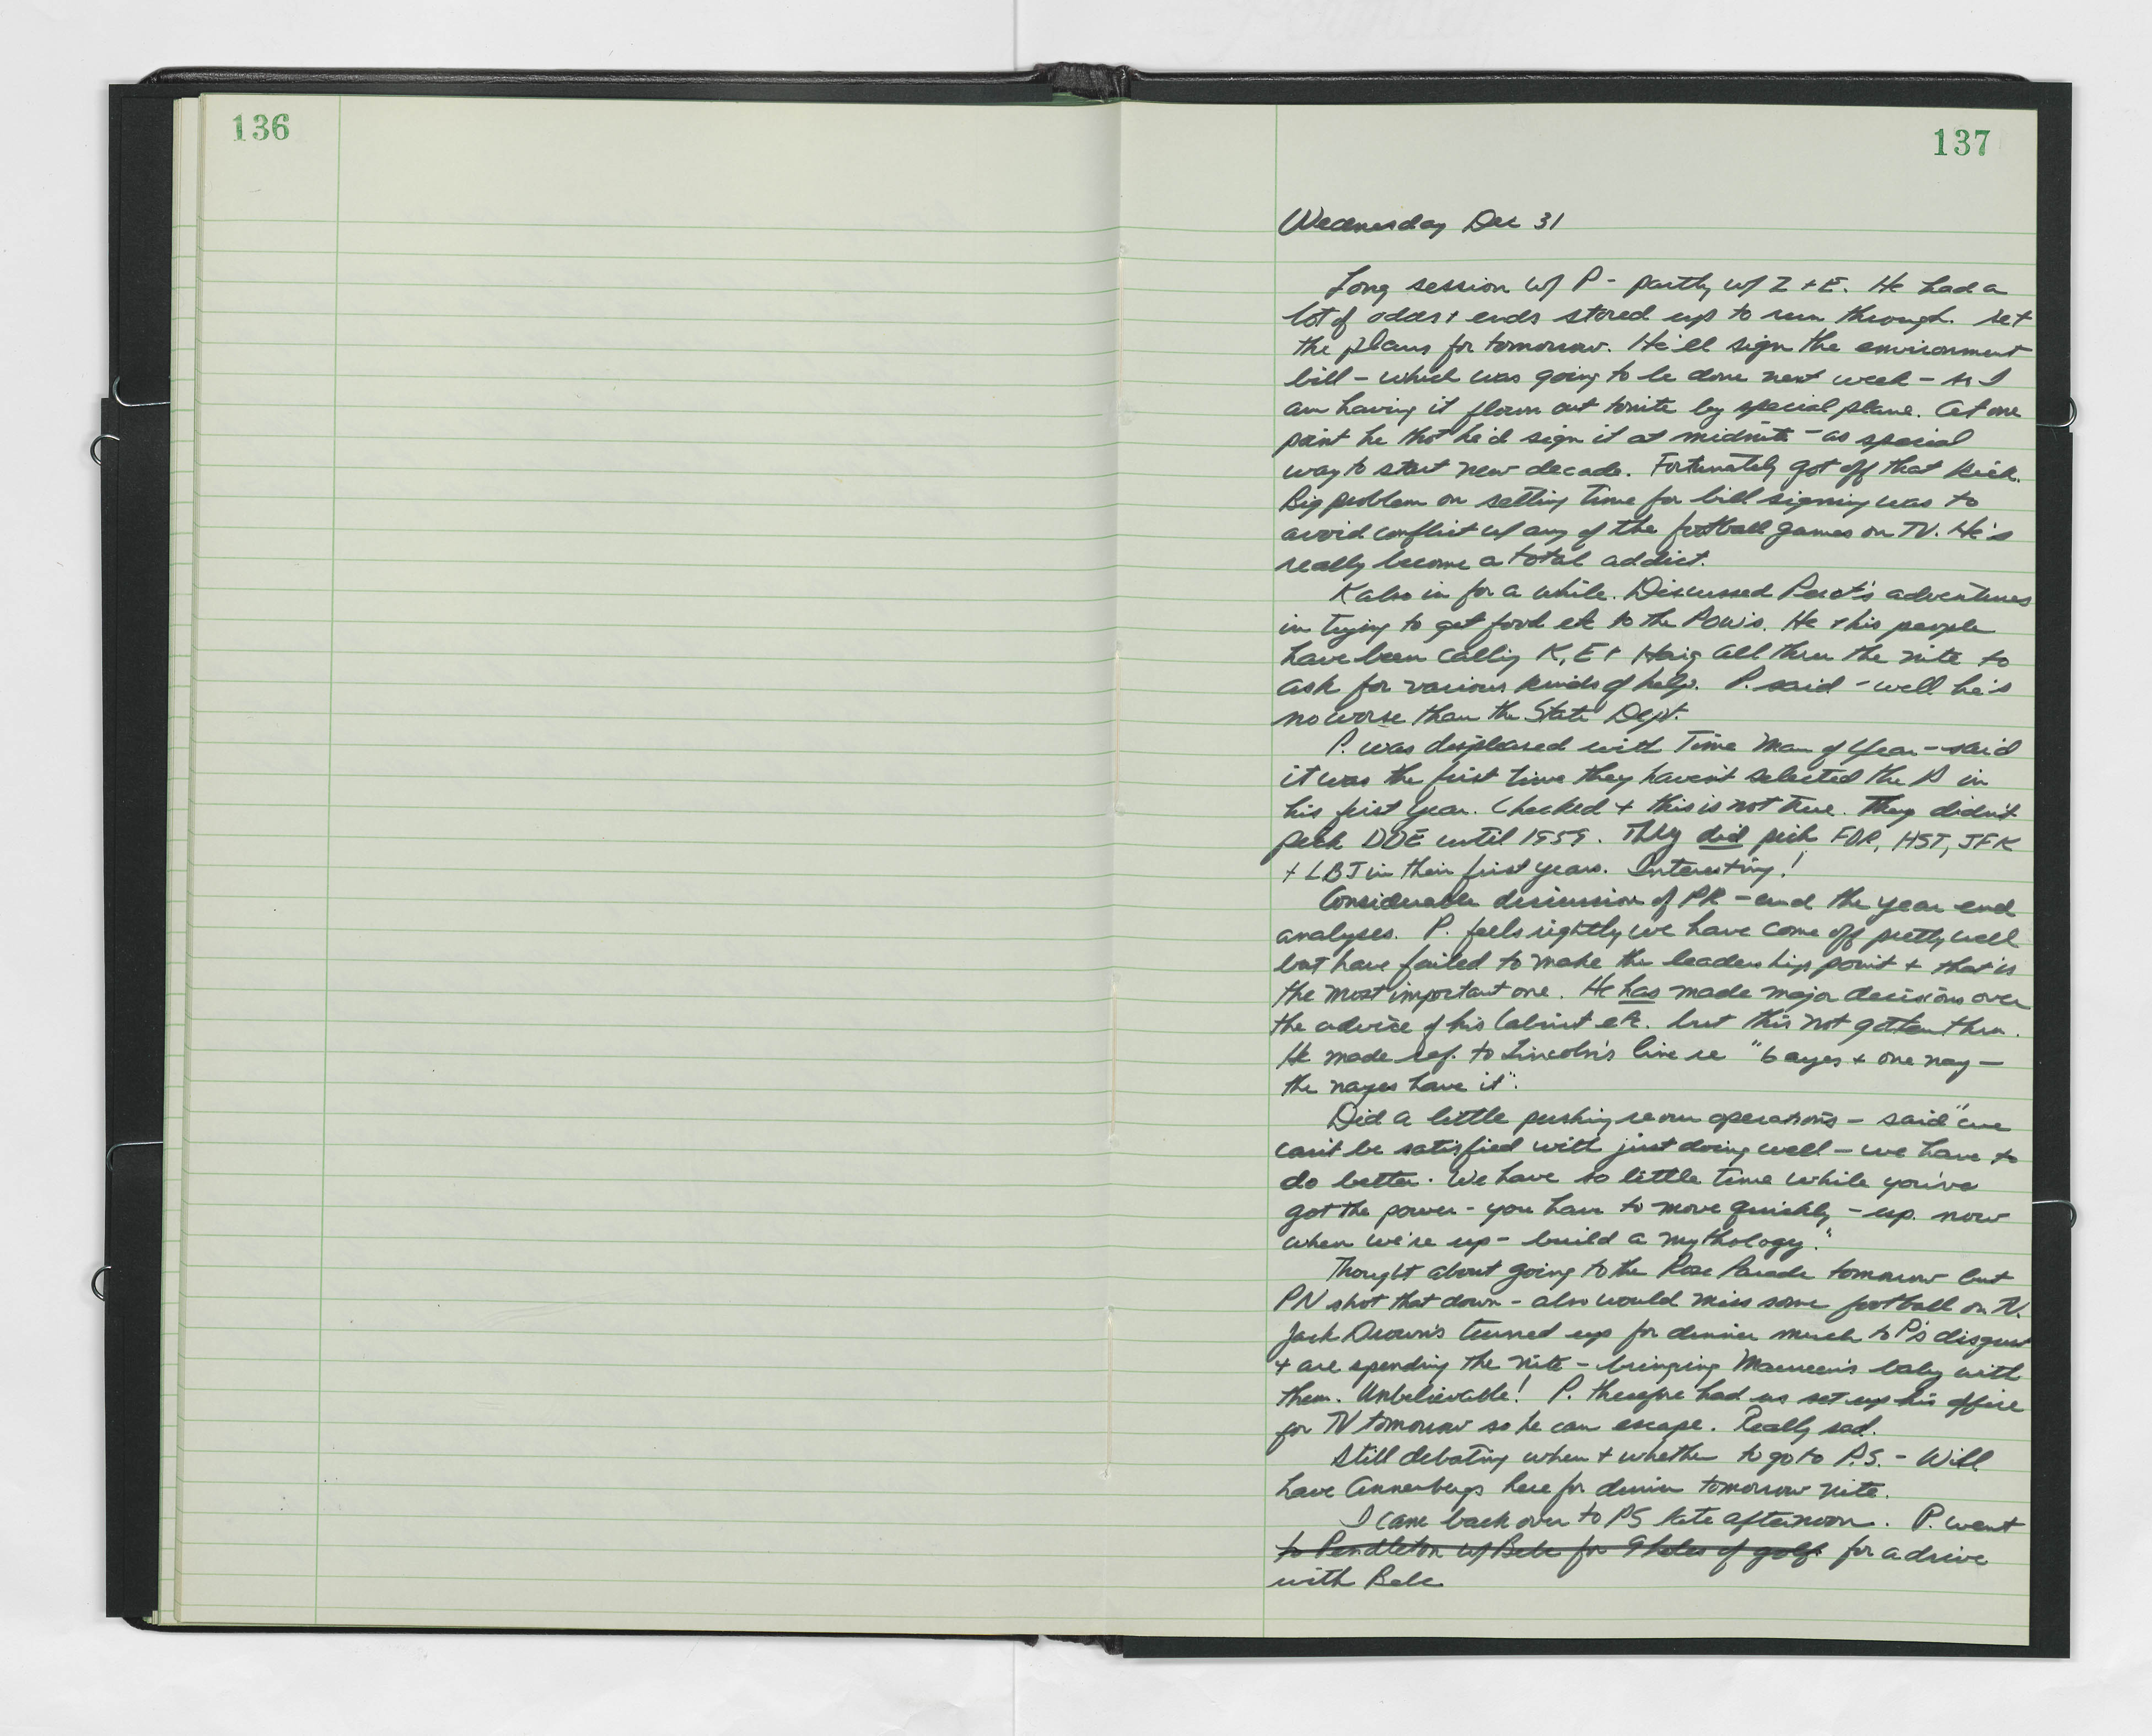 136
137
Wednesday Dec 31
Long session w/ P - partly w/ Z + E. He had a
lot of odds + ends stored up to run through. Set
the plans for tomorrow. He'll sign the environment
bill - which was going to be done next week - so I
am having it flown out tonite by special plane. At one
point he thot he'd sign it at midnite - as special
way to start new decade. Fortunately got off that kick.
Big problem on setting time for bill signing was to
avoid conflict w/ any of the football games on TV. He's
really become a total addict.
K also in for a while. Discussed Perot's adventures
in trying to get food etc to the POW's. He + his people
have been calling K, E + Haig all thru the nite to
ask for various kinds of help. P. said - well he's
no worse than the State Dept.
P. was displeased with Time Man of Year - said
it was the first time they haven't selected the P in
his first year. Checked + this is not true. They didn't
pick DDE until 1959. They did pick FDR, HST, JFK
+ LBJ in their first years. Interesting!
Considerable discussion of PR - and the year end
analyses. P. feels rightly we have come off pretty well
but have failed to make the leadership point + that is
the most important one. He has made major decisions over
the advice of his Cabinet etc. but this not gotten thru.
He made ref. to Lincoln's line re "6 ayes + one nay -
the nayes have it".
Did a little pushing re our operations - said "we
can't be satisfied with just doing well - we have to
do better. We have so little time while you've
got the power - you have to move quickly - esp. now
when we're up - build a mythology."
Thought about going to the Rose Parade tomorrow but
PN shot that down - also would miss some football on TV.
Jack Drown's turned up for dinner much to P's disgust
+ are spending the nite - bringing Maureen's baby with
them. Unbelievable! P. therefore had us set up his office
for TV tomorrow so he can escape. Really sad.
Still debating when + whether to go to P.S. - Will
have Annenbergs here for dinner tomorrow nite.
I came back over to PS late afternoon. P. went
to Pendleton w/ Bebe for 9 holes of golf for a drive
with Bebe.